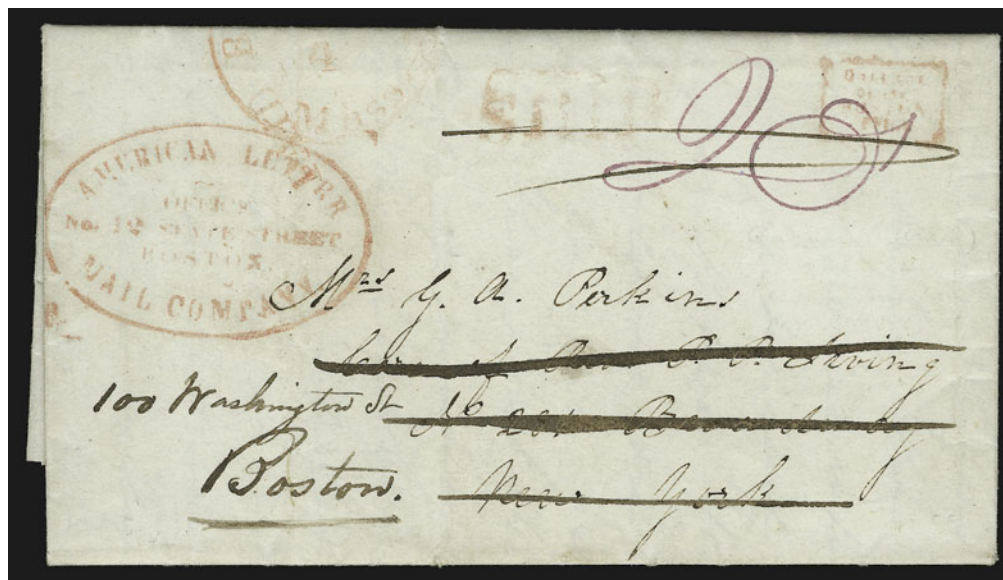 4
MASS
SHIP
20
AMERICAN LETTER
OFFICE
No. 12 STATE STREET
BOSTON.
MAIL COMPANY
Mrs G. A. Perkins
Care of P. P. Irving
100 Washington St
No Broadway
Boston. New York